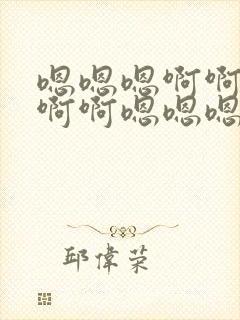 嗯嗯嗯啊啊
啊啊嗯嗯嗯
邱偉荣